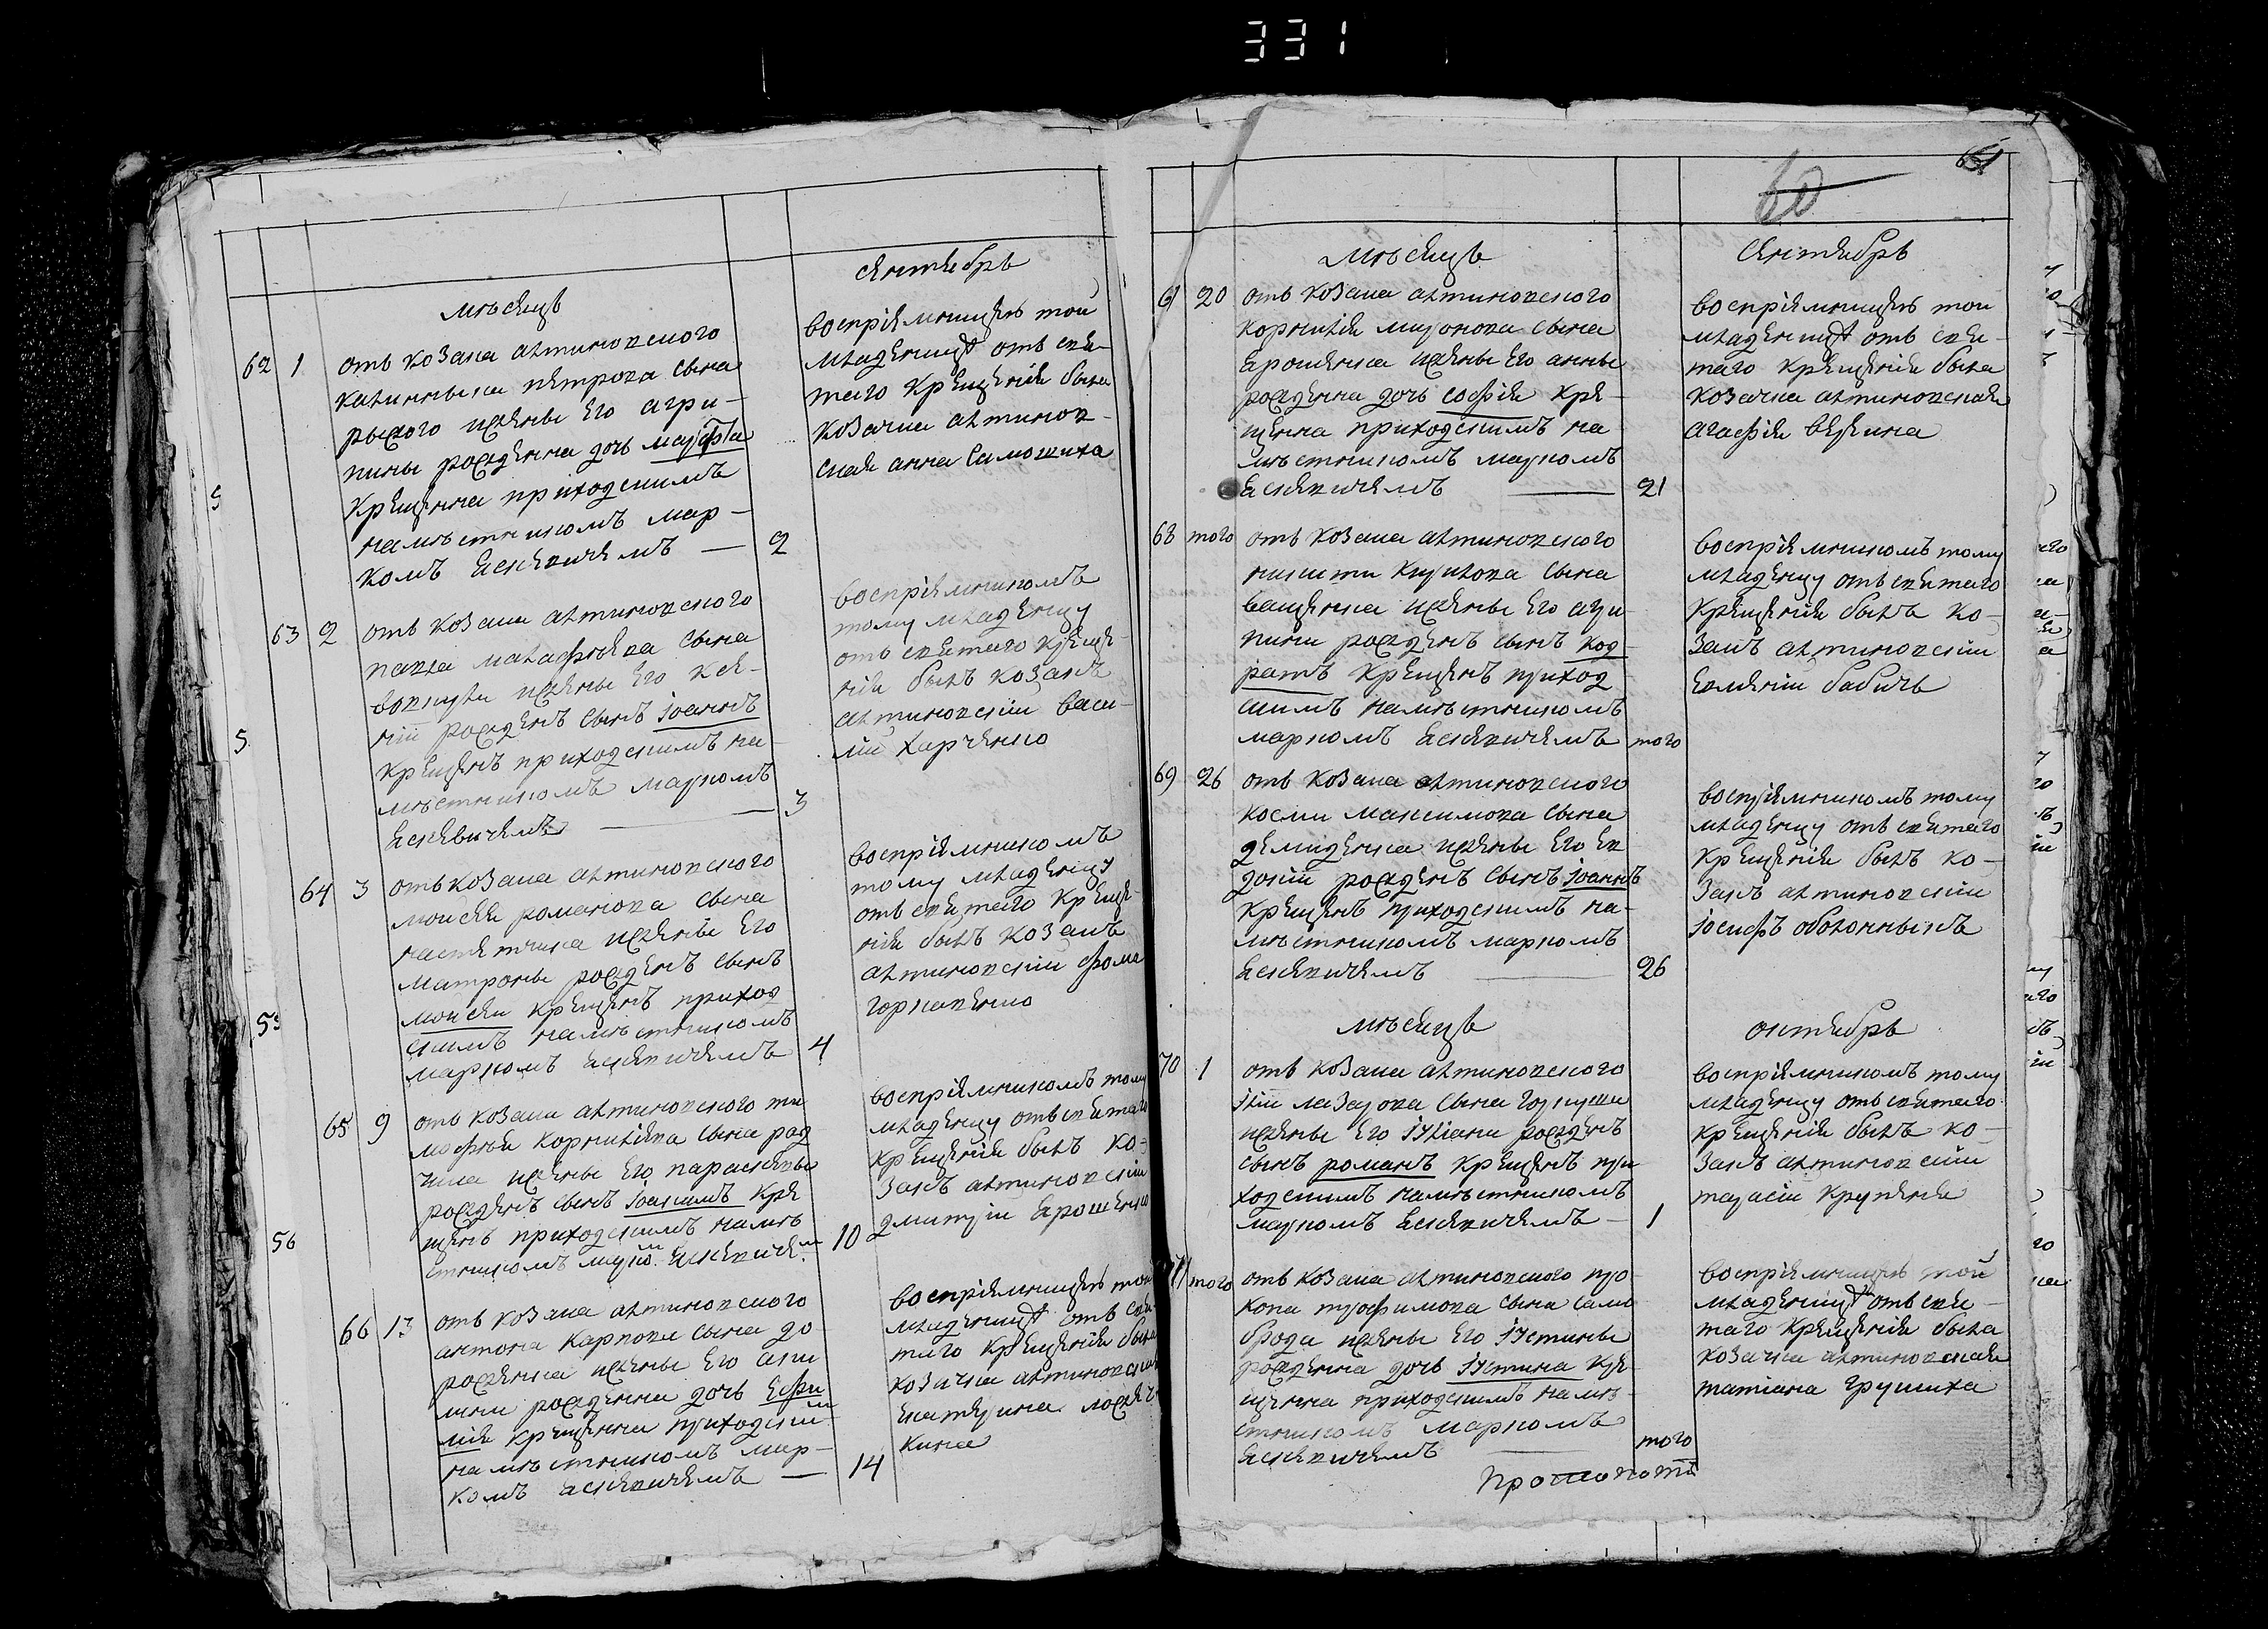 331
мѣсяцъ
сентябрь
62 1 отъ козака алтиновского
калинника петрова сына
рыжого жены его агри-
пины рожденна дочь марфа
крещенна приходскимъ
намѣстникомъ мар-
комъ Ескевичемъ — 2
воспріямницею той
младеницѣ отъ свя-
таго крещенія была
козачка алтинов-
ская анна Самошиха
63 2 отъ козака алтиновского
павла малафѣева сына
жены его ксе-
ніи рожденъ сынъ іоаннъ
крещенъ приходскимъ на-
мѣстникомъ маркомъ
Ескевичемъ — 3
воспріямникомъ
тому младенцу
отъ святаго креще-
нія былъ козакъ
алтиновскій васи-
лій харченко
64 3 отъ козака алтиновского
моисея романова сына
жены его
матроны рожденъ сынъ
моисей крещенъ приход
скимъ намѣстникомъ
маркомъ Ескевичемъ 4
воспріямникомъ
тому младенцу
отъ святаго креще-
нія былъ козакъ
алтиновскій фома
65 9 отъ козака алтиновского ти
мофѣя корнилієва сына рад
чика жены его параскевы
рожденъ сынъ іоакимъ кре
щенъ приходскимъ намѣ
стникомъ марко.м Ескевиче.м 10
воспріямникомъ тому
младенцу отъ святаго
крещенія былъ ко-
закъ алтиновскій
дмитрій Ярошенко
66 13 отъ козака алтиновского
антона карпова сына до
роженка жены его аки
лини рожденна дочь Ефи
мія крещенна приходским
намѣстникомъ мар-
комъ Ескевичемъ — 14
воспріямницею той
младеницѣ отъ свя-
таго крещенія была
козачка алтиновская
Екатерина
кина
5
5
55
56
60
61
мѣсяцъ
Сентябрь
67 20 отъ козака алтиновского
корнилія миронова сына
Ярошенка жены его анны
рожденна дочь софія кре-
щенна приходскимъ на
мѣстникомъ маркомъ
Ескевичемъ — 21
воспріямницею той
младеницѣ отъ свя-
таго крещенія была
козачка алтиновская
агафія
68 того отъ козака алтиновского
никити кирилова сына
ващенка жены его агри-
пини рожденъ сынъ код-
ратъ крещенъ приход
скимъ намѣстникомъ
маркомъ Ескевичемъ того
воспріямникомъ тому
младенцу отъ святаго
крещенія былъ ко-
закъ алтиновскій
Евменій бабичъ
69 26 отъ козака алтиновского
косми максимова сына
демиденка жены его Ев
докіи рожденъ сынъ іоаннъ
крещенъ приходскимъ на-
мѣстникомъ маркомъ
Ескевичемъ — 26
воспріямникомъ тому
младенцу отъ святаго
крещенія былъ ко-
закъ алтиновскій
іосифъ оболонникъ
мѣсяцъ
октябрь
70 1 отъ козака алтиновского
іліи лазарова сына горкуши
жены его іуліани рожденъ
сынъ романъ крещенъ при
ходскимъ намѣстникомъ
маркомъ Ескевичемъ — 1
воспріямникомъ тому
младенцу отъ святаго
крещенія былъ ко-
закъ алтиновскій
тарасій крупеня
71 того отъ козака алтиновского про
копа трофимова сына само
брода жены его іустины
рожденна дочь іустина кре-
щенна приходскимъ намѣ-
стникомъ маркомъ
Ескевичемъ — того
воспріямницею той
младеницѣ отъ свя-
таго крещенія была
козачка алтиновская
татіана грушиха